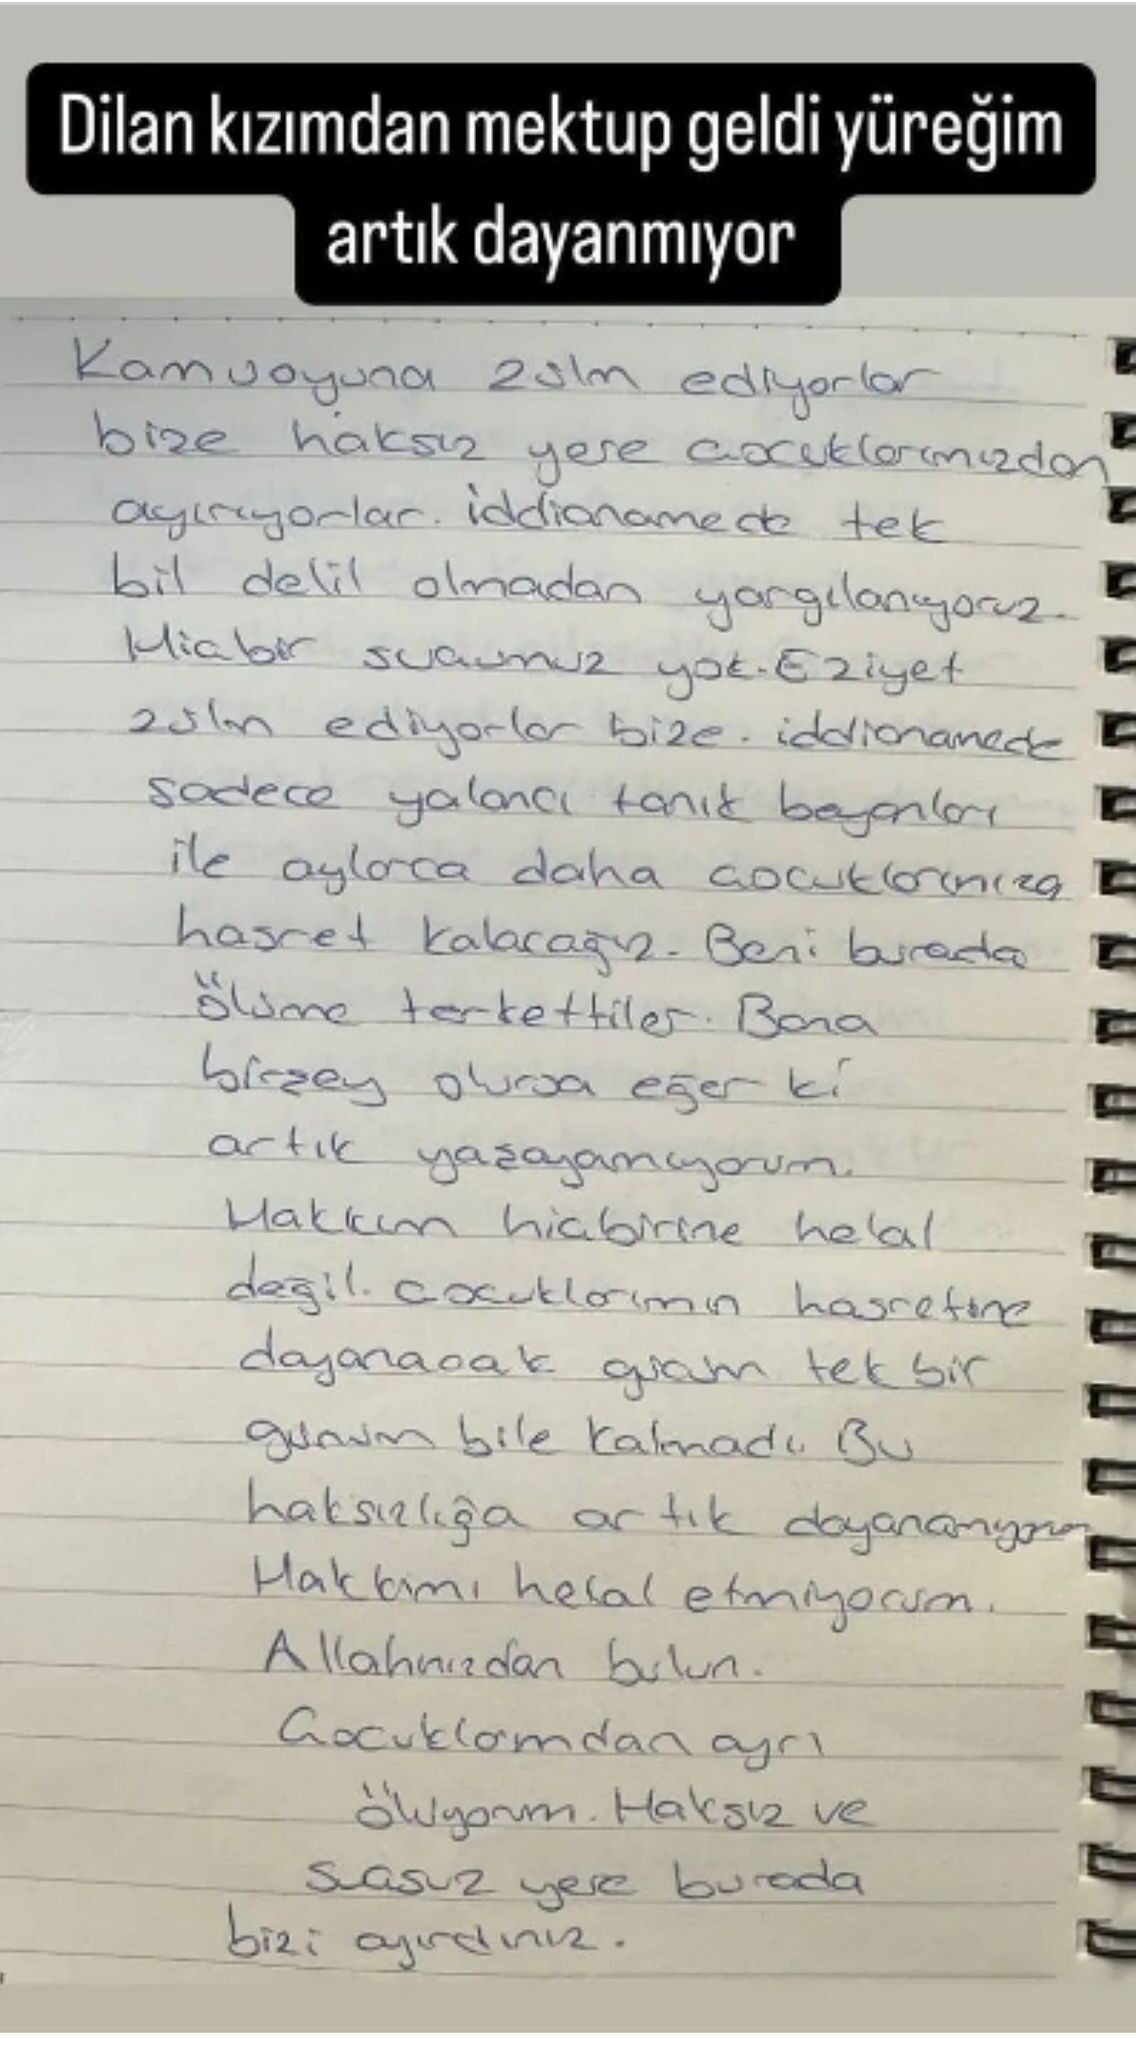 Dilan kızımdan mektup geldi yüreğim
artık dayanmıyor
Kamuoyuna zülm ediyorlar
bize haksız yere cocuklarımızdan
ayırıyorlar. iddianamede tek
bil delil olmadan yargılanıyoruz.
Hicbir sucumuz yok. Eziyet
zülm ediyorlar bize. iddianamede
sadece yalancı tanık beyanları
ile aylarca daha cocuklarımıza
hasret kalacağız. Beni burada
ölüme terkettiler. Bana
birşey olursa eğer ki
artık yaşayamıyorum.
Hakkım hicbirine helal
değil. cocuklarımın hasretine
dayanacak gücüm tek bir
günüm bile kalmadı. Bu
haksızlığa artık dayanamıyorum
Hakkımı helal etmiyorum.
Allahınızdan bulun.
Cocuklarımdan ayrı
ölüyorum. Haksız ve
sucsuz yere burada
bizi ayırdınız.